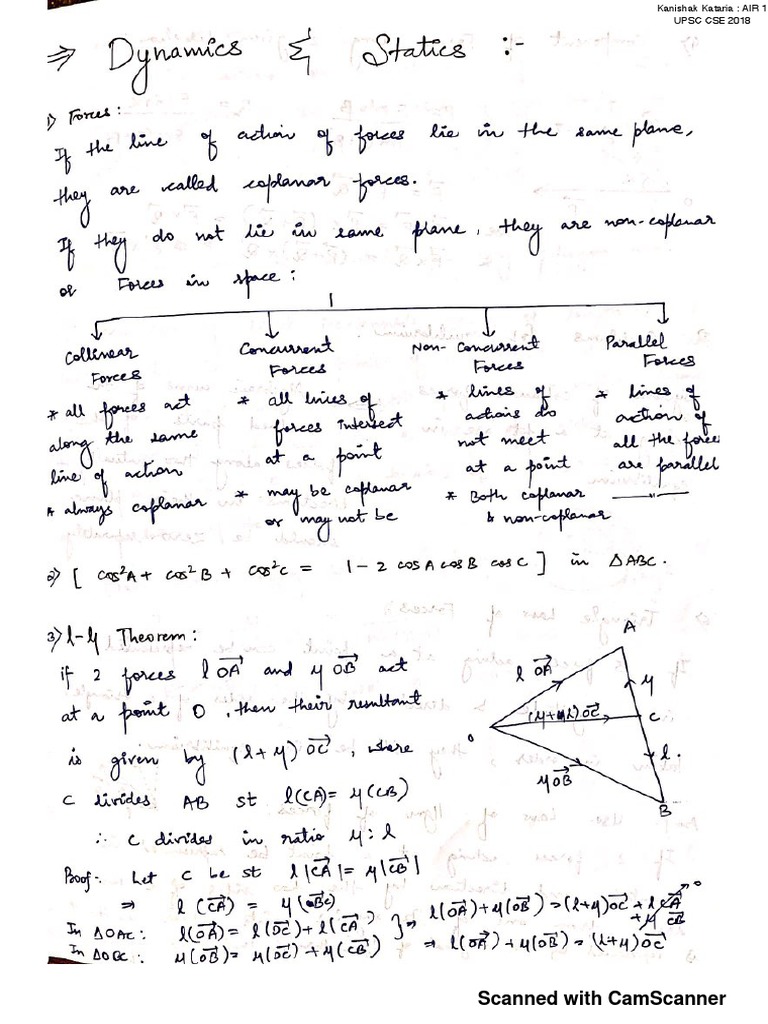 Kanishak Kataria : AIR 1
UPSC CSE 2018
⇒ Dynamics & Statics :-
1) Forces:
If the line of action of forces lie in the same plane,
they are called coplanar forces.
If they do not lie in same plane, they are non-coplanar
or Forces in space :
Collinear Forces
* all forces act
along the same
line of action
* always coplanar
Concurrent Forces
* all lines of
forces intersect
at a point
* may be coplanar
or may not be
Non-Concurrent Forces
* lines of
actions do
not meet
at a point
* Both coplanar
& non-coplanar
Parallel Forces
* lines of
action of
all the force
are parallel
—"—
2) [ cos²A + cos²B + cos²C = 1 - 2 cosA cosB cosC ] in ΔABC.
3) l-μ Theorem:
if 2 forces l OA→ and μ OB→ act
at a point O, then their resultant
is given by (l+μ) OC→, where
C divides AB st l(CA) = μ(CB)
∴ C divides in ratio μ : l
A
l OA→
μ
(μ+l)OC→
C
O
l.
μOB→
B
Proof:- Let C be st l|CA→| = μ|CB→|
⇒ l(CA→) = μ(BC)
In ΔOAC: l(OA→) = l(OC→) + l(CA→)
In ΔOBC: μ(OB→) = μ(OC→) + μ(CB→)
} ⇒ l(OA→) + μ(OB→) = (l+μ)OC→ + l CA→ + μ CB→ 0
⇒ l(OA→) + μ(OB→) = (l+μ)OC→
Scanned with CamScanner